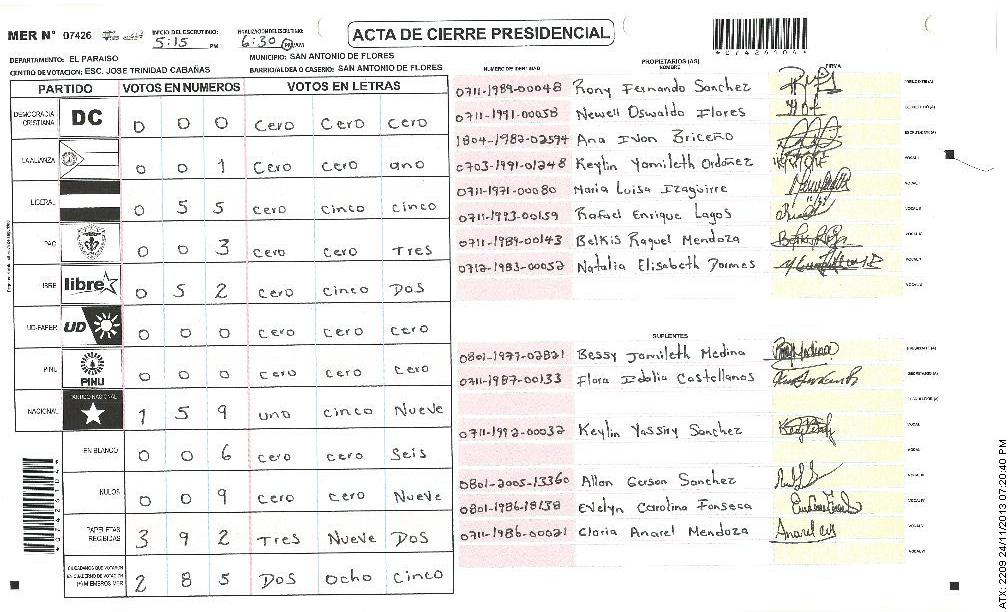 MER N° 07426
INICIO DEL ESCRUTINIO: 5:15 PM
FINALIZACION DEL ESCRUTINIO: 6:30 PM/AM
ACTA DE CIERRE PRESIDENCIAL
DEPARTAMENTO: EL PARAISO
MUNICIPIO: SAN ANTONIO DE FLORES
CENTRO DE VOTACION: ESC. JOSE TRINIDAD CABAÑAS
BARRIO/ALDEA O CASERIO: SAN ANTONIO DE FLORES
PARTIDO VOTOS EN NUMEROS VOTOS EN LETRAS
DEMOCRACIA CRISTIANA DC 0 0 0 cero cero cero
LA ALIANZA 0 0 1 cero cero uno
LIBERAL 0 5 5 cero cinco cinco
PAC 0 0 3 cero cero Tres
LIBRE libre 0 5 2 cero cinco Dos
UD-FAPER UD 0 0 0 cero cero cero
PINU PINU 0 0 0 cero cero cero
NACIONAL PARTIDO NACIONAL 1 5 9 uno cinco Nueve
EN BLANCO 0 0 6 cero cero Seis
NULOS 0 0 9 cero cero Nueve
PAPELETAS RECIBIDAS 3 9 2 Tres Nueve Dos
CIUDADANOS QUE VOTARON EN CUADERNO DE VOTACION (+) MIEMBROS MER 2 8 5 Dos Ocho cinco
PROPIETARIOS (AS)
NUMERO DE IDENTIDAD NOMBRE FIRMA
0711-1989-00048 Rony Fernando Sanchez
0711-1991-00058 Newell Oswaldo Flores
1804-1982-02594 Ana Ivon Briceño
0703-1991-01248 Keylin Yamileth Ordoñez
0711-1971-00080 Maria Luisa Izaguirre
0711-1993-00159 Rafael Enrique Lagos
0711-1989-00143 Belkis Raquel Mendoza
0712-1983-00052 Natalia Elisabeth Dormes
SUPLENTES
0801-1977-02821 Bessy Jamileth Medina
0711-1987-00133 Flora Idalia Castellanos
0711-1992-00032 Keylin Yassiry Sanchez
0801-2005-13360 Allan Gerson Sanchez
0801-1986-18138 Evelyn Carolina Fonseca
0711-1986-00021 Gloria Anarel Mendoza
ATX: 2209 24/11/2013 07:20:40 PM